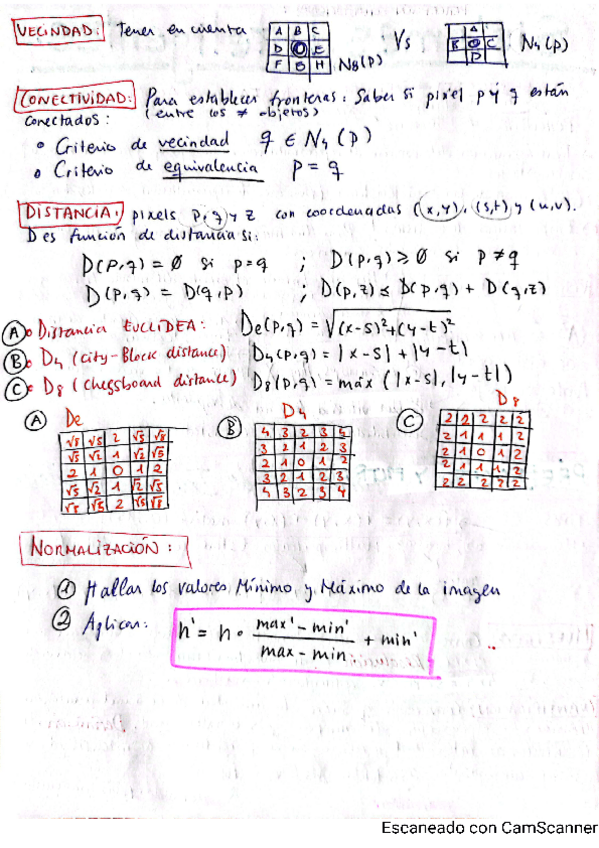 VECINDAD: Tener en cuenta
A B C
D E
F G H N8(p)
Vs
A
B C
D
N4(p)
CONECTIVIDAD: Para establecer fronteras: Saber si pixel p y q están
conectados: (entre los ≠ objetos)
• Criterio de vecindad q ∈ N4(p)
• Criterio de equivalencia p = q
DISTANCIA: pixels p, q y z con coordenadas (x,y), (s,t) y (u,v).
D es función de distancia si:
D(p,q) = Ø si p=q ; D(p,q) ≥ Ø si p ≠ q
D(p,q) = D(q,p) ; D(p,z) ≤ D(p,q) + D(q,z)
A • Distancia EUCLIDEA: De(p,q) = √(x-s)²+(y-t)²
B • D4 (city-Block distance) D4(p,q) = |x-s| + |y-t|
C • D8 (chessboard distance) D8(p,q) = máx (|x-s|, |y-t|)
A De
√8 √5 2 √5 √8
√5 √2 1 √2 √5
2 1 0 1 2
√5 √2 1 √2 √5
√8 √5 2 √5 √8
B D4
4 3 2 3 5
3 2 1 2 3
2 1 0 1 2
3 2 1 2 3
4 3 2 3 4
C D8
2 2 2 2 2
2 1 1 1 2
2 1 0 1 2
2 1 1 1 2
2 2 2 2 2
NORMALIZACIÓN:
1 Hallar los valores Mínimo y Máximo de la imagen
2 Aplicar: h' = h · (max' - min')/(max - min) + min'
Escaneado con CamScanner